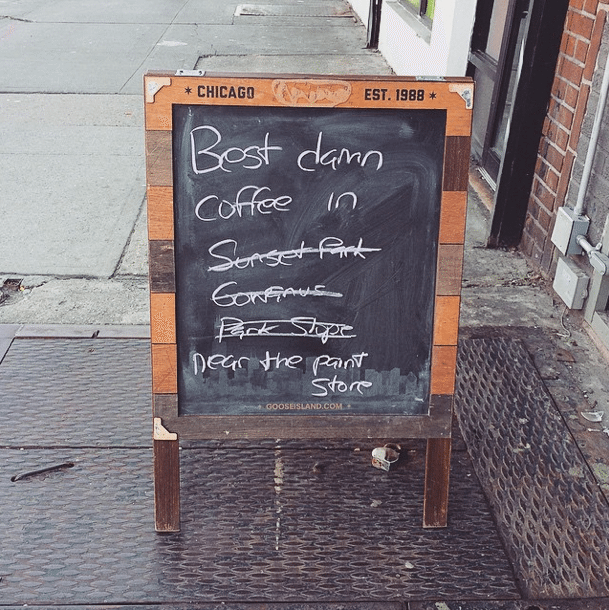 * CHICAGO EST. 1988 *
Best damn
coffee in
Sunset Park
Gowanus
Park Slope
near the paint
Store
* GOOSEISLAND.COM *